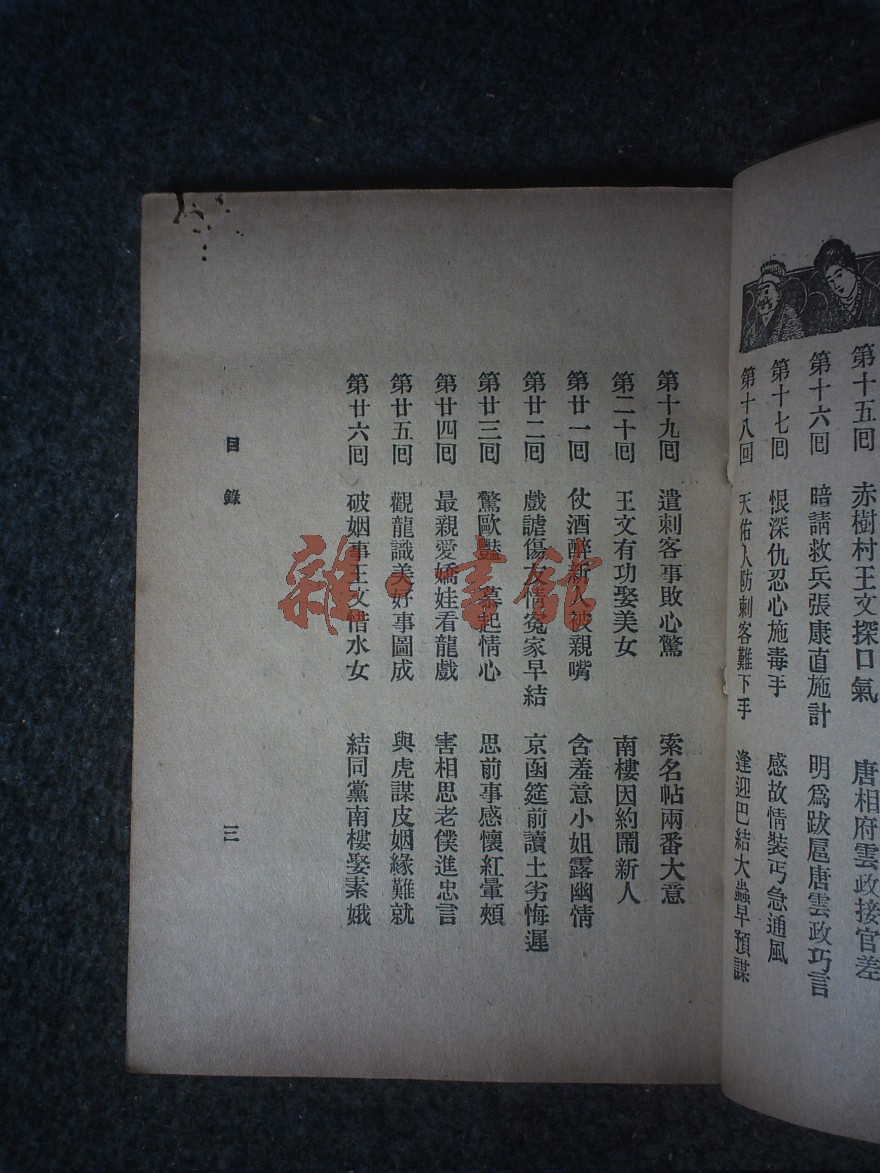 第十五回 赤樹村王文探口氣 唐相府雲政接官差
第十六回 暗請救兵張康直施計 明爲跋扈唐雲政巧言
第十七回 恨深仇忍心施毒手 感故情裝丐急通風
第十八回 天佑人防刺客難下手 逢迎巴結大蟲早預謀
第十九回 遣刺客事敗心驚 索名帖兩番大意
第二十回 王文有功娶美女 南樓因約鬧新人
第廿一回 仗酒醉新人被親嘴 含羞意小姐露幽情
第廿二回 戲謔傷友情冤家早結 京函筵前讀土劣悔遲
第廿三回 驚歐豔 慕起情心 思前事感懷紅暈頰
第廿四回 最親愛嬌娃看龍戲 害相思老僕進忠言
第廿五回 觀龍識美好事圖成 與虎謀皮姻緣難就
第廿六回 破姻事王文惜水女 結同黨南樓娶素娥
目錄
三
雜書館